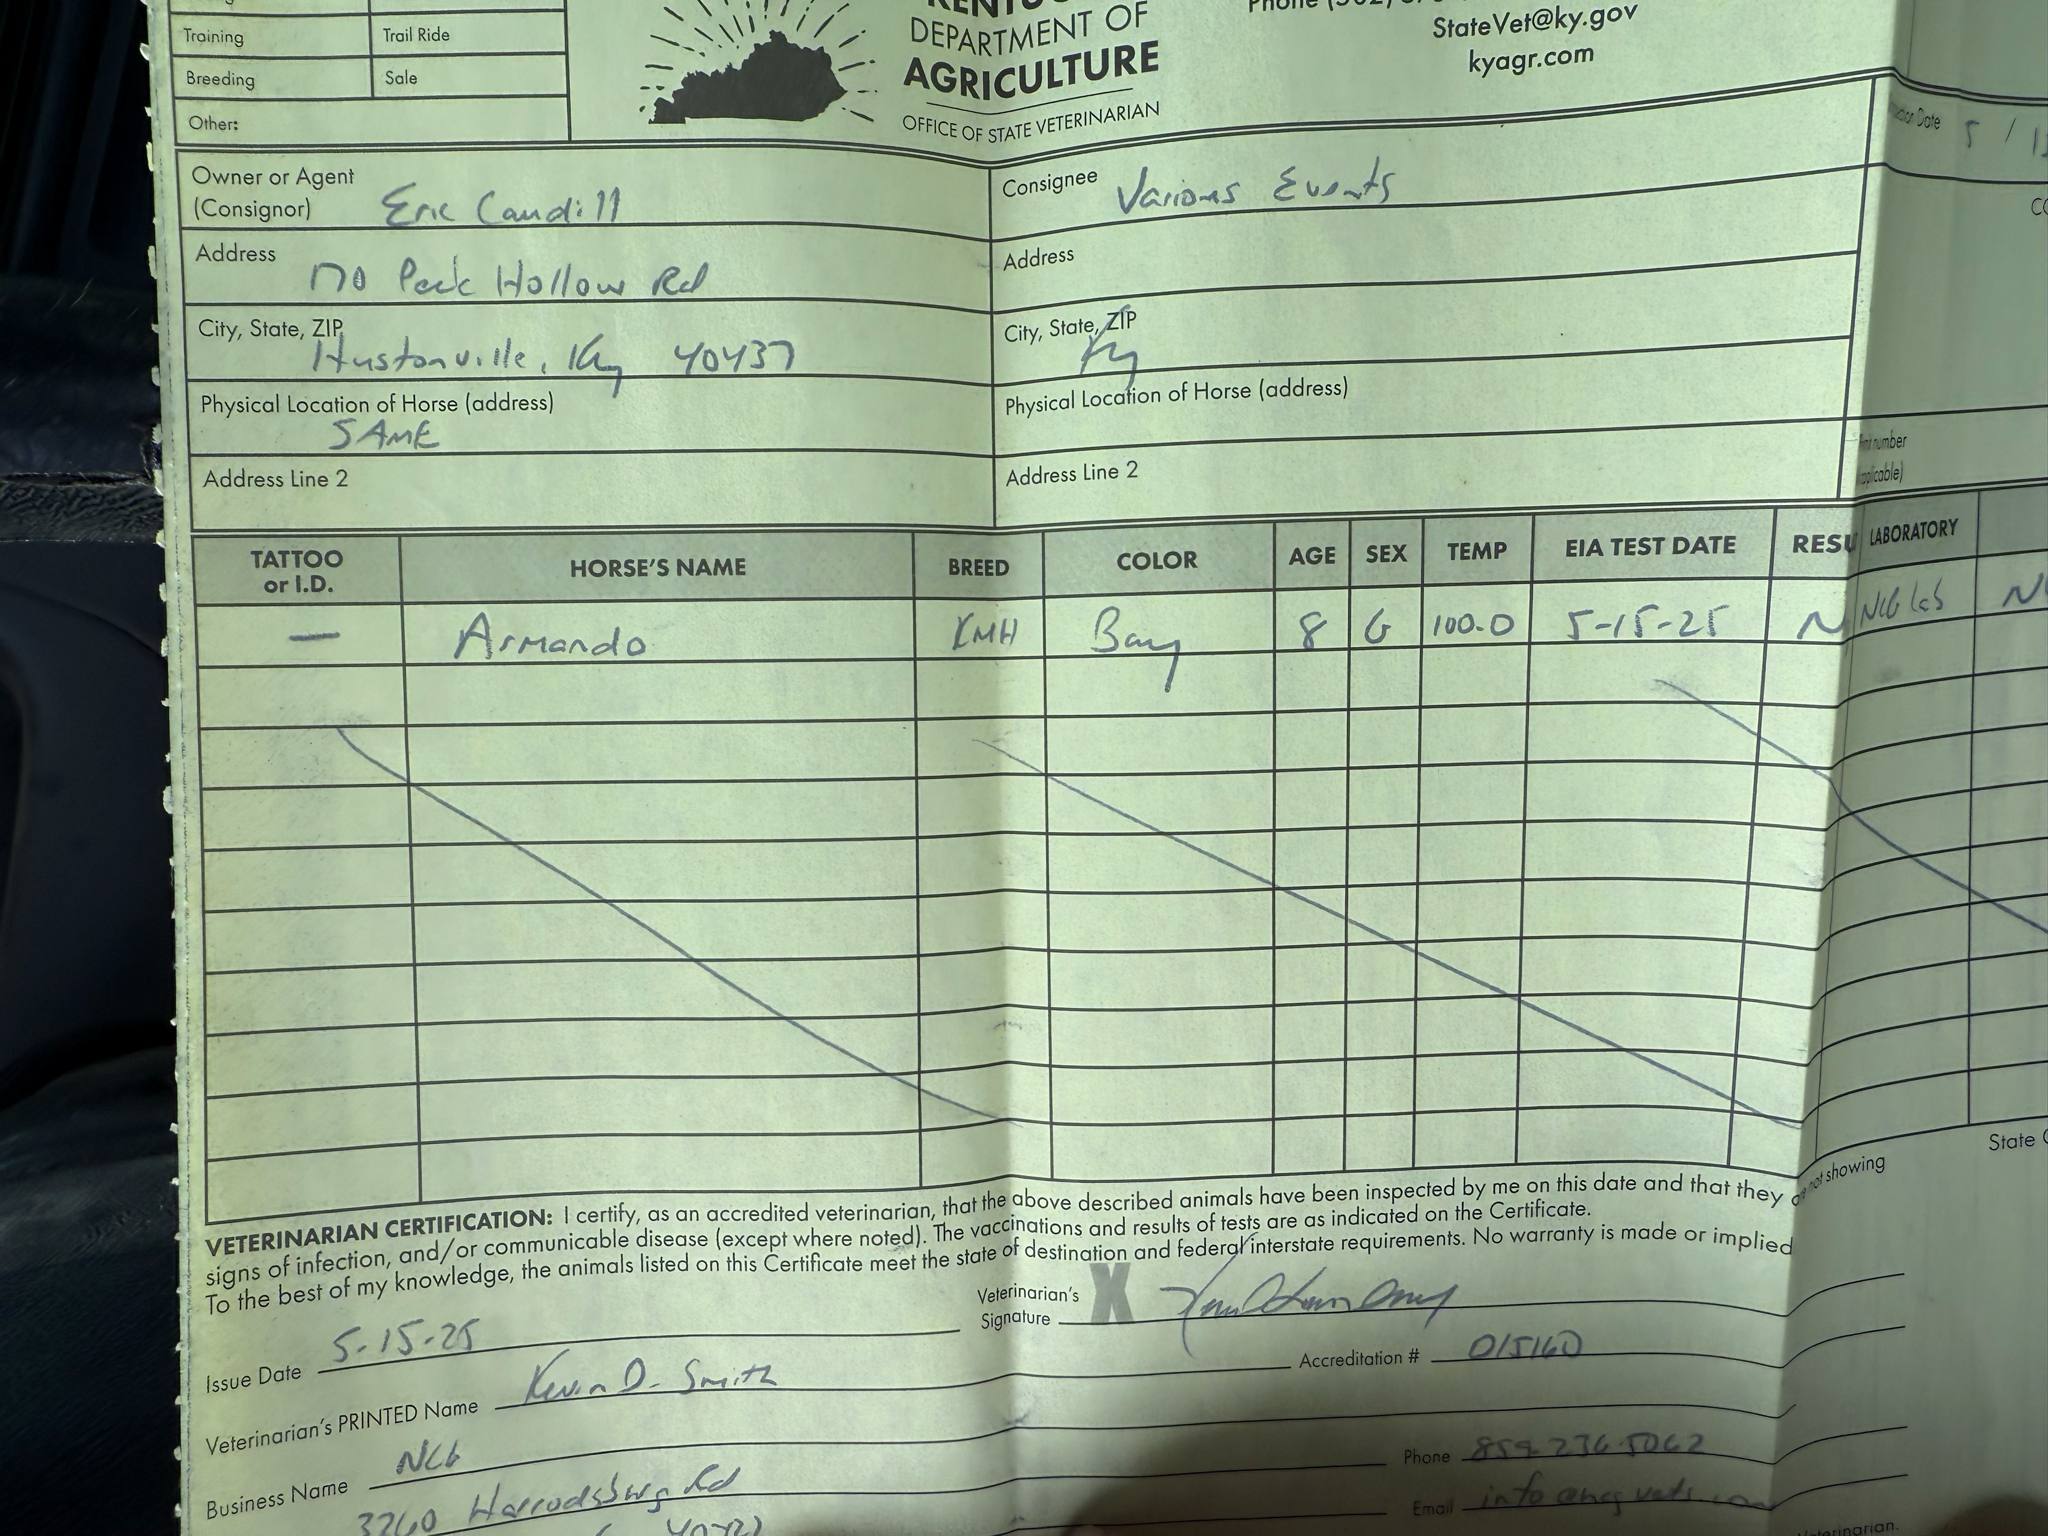 Training Trail Ride
Breeding Sale
Other:
DEPARTMENT OF
AGRICULTURE
OFFICE OF STATE VETERINARIAN
StateVet@ky.gov
kyagr.com
Owner or Agent
(Consignor) Eric Caudill
Consignee Various Events
Date 5 /
Address 170 Peck Hollow Rd
Address
City, State, ZIP Hustonville, Ky 40437
City, State, ZIP Ky
Physical Location of Horse (address)
SAME
Physical Location of Horse (address)
Address Line 2
Address Line 2
number
TATTOO or I.D. HORSE'S NAME BREED COLOR AGE SEX TEMP EIA TEST DATE RESU LABORATORY
— Armando KMH Bay 8 G 100.0 5-15-25 N NCG Lab
VETERINARIAN CERTIFICATION: I certify, as an accredited veterinarian, that the above described animals have been inspected by me on this date and that they are not showing
signs of infection, and/or communicable disease (except where noted). The vaccinations and results of tests are as indicated on the Certificate.
To the best of my knowledge, the animals listed on this Certificate meet the state of destination and federal interstate requirements. No warranty is made or implied
Veterinarian's
Signature X
Issue Date 5-15-25
Accreditation # 015160
Veterinarian's PRINTED Name Kevin D. Smith
Business Name NCG
Phone 859-236-5062
3260 Harrodsburg Rd
Email